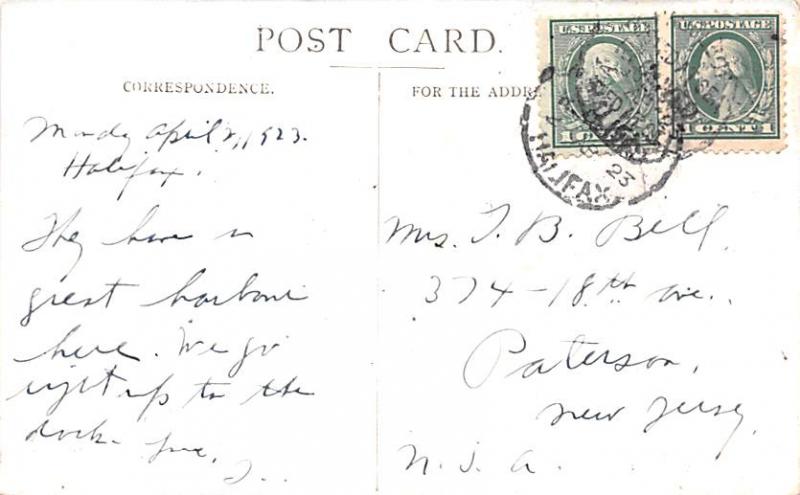 POST CARD.
CORRESPONDENCE.
FOR THE ADDRE
U.S. POSTAGE
1 CENT 1
U.S. POSTAGE
1 CENT 1
HALIFAX
23
Monday April 2, 1923.
Halifax.
They have a
great harbour
here. We go
right up to the
dock.
Mrs. T. B. Bell,
374-18th ave.,
Paterson,
New Jersey,
U. S. A.